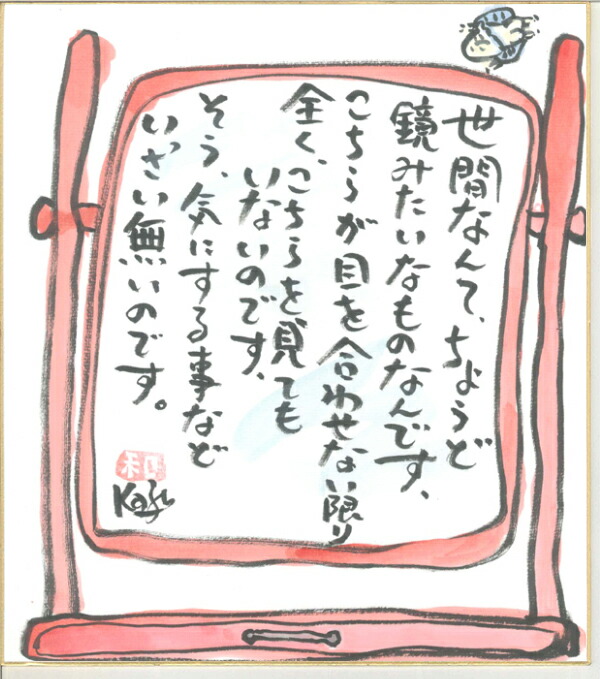 世間なんて、ちょうど
鏡みたいなものなんです、
こちらが目を合わせない限り
全く、こちらを見ても
いないのです、
そう、気にする事など
いっさい無いのです。
Kazu